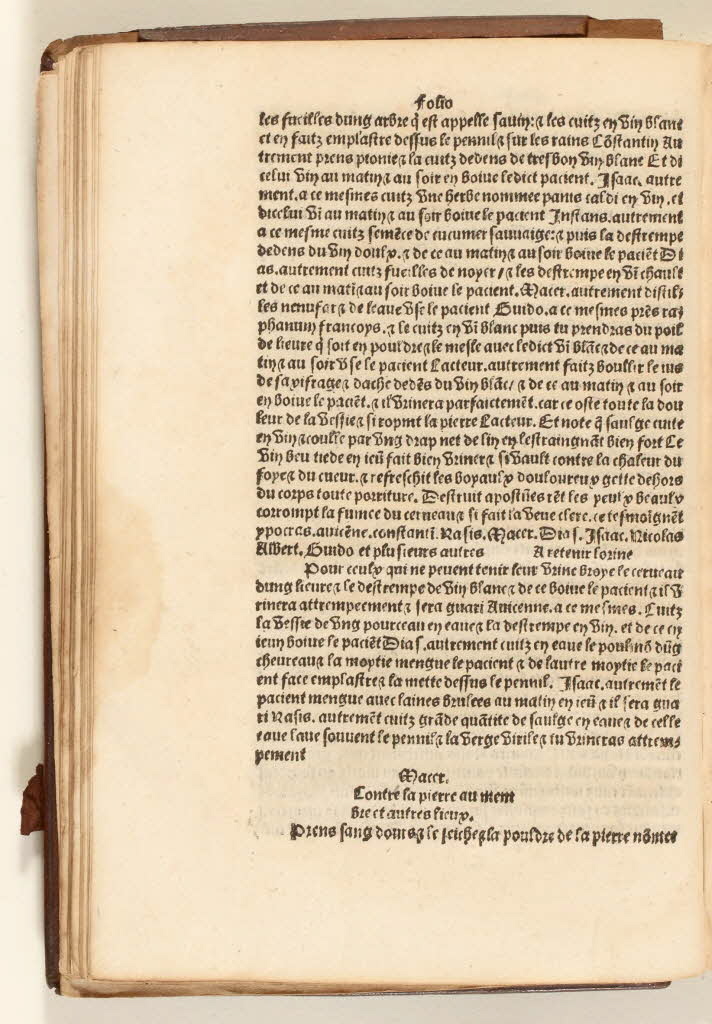 Folio
les fueilles dung arbre q̄ est appelle sauin: ⁊ les cuitz en vin blanc
et en faitz emplastre dessus le pennil ⁊ sur les rains Cōstantin Au
trement prens pionie ⁊ la cuitz dedens de tresbon vin blanc Et di
celui vin au matin ⁊ au soir en boiue ledict pacient. Isaac. autre
ment. a ce mesmes cuitz vne herbe nommee panis caldi en vin. et
dicelui vī au matin ⁊ au soir boiue le pacient Instans. autrement
a ce mesme cuitz semēce de cucumer sauuaige: ⁊ puis la destrempe
dedens du vin doulx. ⁊ de ce au matin ⁊ au soir boiue le paciēt Di
as. autrement cuitz fueilles de noyer/ ⁊ les destrempe en vī chault
et de ce au matī ⁊ au soir boiue le pacient. Macer. autrement distil⸗
les nenufar ⁊ de leaue vse le pacient Guido. a ce mesmes prēs ra
phanum francoys. ⁊ le cuitz en vī blanc puis tu prendras du poil
de lieure q̄ soit en pouldre ⁊ le mesle auec ledict vī blāc ⁊ de ce au ma
tin ⁊ au soir vse le pacient Lacteur. autrement faitz boullir le ius
de saxifrage ⁊ dache dedēs du vin blāc/ ⁊ de ce au matin ⁊ au soir
en boiue le paciēt. ⁊ il vrinera parfaictement. car ce oste toute la dou
leur de la vessie ⁊ si ropmt la pierre Lacteur. Et note q̄ saulge cuite
en vin ⁊ coulle par vng drap net de lin en lestraingnāt bien fort Ce
vin beu tiede en ieū fait bien vriner ⁊ si vault contre la chaleur du
foye ⁊ du cueur. ⁊ refreschit les boyaulx douloureux gette dehors
du corps toute porriture. Destruit apostūes rēt les yeulx beaulx
corrompt la fumee du cerueau ⁊ si fait la veue clere. ce tesmoignēt
ypocras. auicēne. constantī. Rasis. Macer. Dias. Isaac. Nicolas
Albert. Guido et plusieurs autres A retenir lorine
Pour ceulx qui ne peuent tenir leur vrine broye le cerueau
dung lieure ⁊ le destrempe de vin blanc ⁊ de ce boiue le pacient ⁊ il v
rinera attrempeement ⁊ sera guari Auicenne. a ce mesmes. Cuitz
la vessie de vng pourceau en eaue ⁊ la destrempe en vin. et de ce en
ieun boiue le paciēt Dias. autrement cuitz en eaue le poulmō dūg
cheureau ⁊ la moytie mengue le pacient ⁊ de lautre moytie le paci
ent face emplastre ⁊ la mette dessus le pennil. Isaac. autremēt le
pacient mengue auec laines brulees au matin en ieū ⁊ il sera gua
ri Rasis. autremēt cuitz grāde quātite de saulge en eaue ⁊ de celle
eaue laue souuent le pennil ⁊ la verge virile ⁊ tu vrineras attrem⸗
pement
Macer.
Contre la pierre au mem
bre et autres lieux.
Prens sang dours ⁊ le seiche ⁊ la pouldre de la pierre nōmee